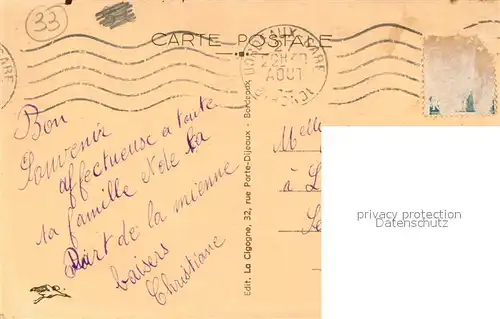 33
CARTE POSTALE
BORDEAUX GARE
AOUT
GIRONDE
Bon
Souvenir
affectueuse a toute
ta famille
Part de la mienne
baisers
Christiane
Edit. La Cigogne, 32, rue Porte-Dijeaux - Bordeaux
Melle
à L
privacy protection
Datenschutz